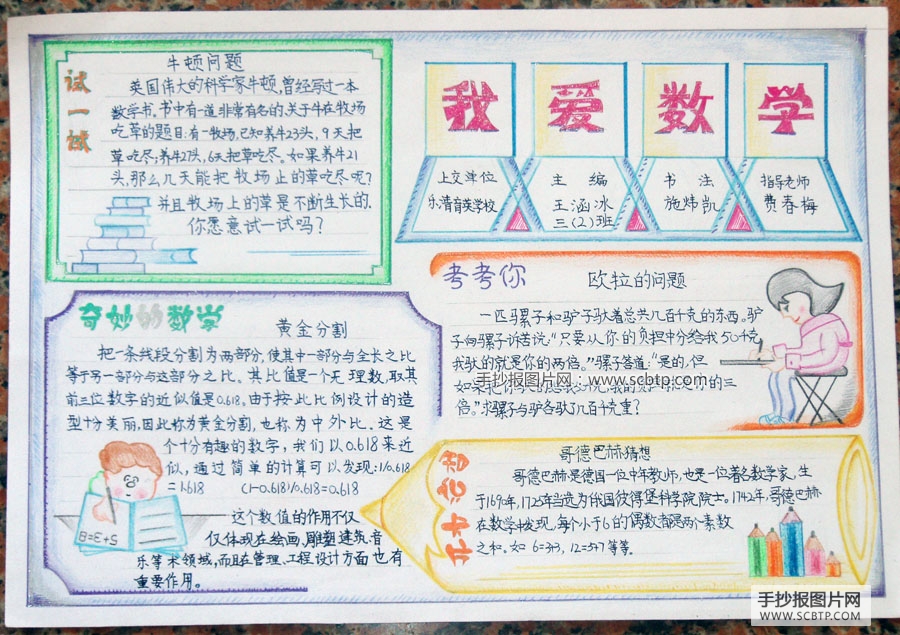 我爱数学
上交单位
乐清育英学校
主 编
王涵冰
三(2)班
书 法
施炜凯
指导老师
费春梅
试一试
牛顿问题
英国伟大的科学家牛顿,曾经写过一本
数学书.书中有一道非常有名的.关于牛在牧场
吃草的题目:有一牧场,已知养牛23头, 9天把
草吃尽;养牛27头,6天把草吃尽。如果养牛21
头,那么几天能把牧场上的草吃尽呢?
并且牧场上的草是不断生长的.
你愿意试一试吗?
考考你
欧拉的问题
一匹马骡子和驴子驮着总共几百千克的东西。驴
子向骡子诉苦说:“只要从你的负担中分给我50千克
我驮的就是你的两倍。”骡子答道:“是的,但
如果
的三
倍。”求骡子与驴各驮了几百千克重?
手抄报图片网 www.scbtp.com
奇妙的数学
黄金分割
把一条线段分割为两部分,使其中一部分与全长之比
等于另一部分与这部分之比。其比值是一个无理数,取其
前三位数字的近似值是0.618。由于按此比例设计的造
型十分美丽,因此称为黄金分割,也称为中外比。这是
个十分有趣的数字,我们以0.618来近
似,通过简单的计算可以发现:1/0.618
=1.618 (1-0.618)/0.618=0.618
这个数值的作用不仅
仅体现在绘画.雕塑.建筑.音
乐等术领域,而且在管理.工程设计方面也有
重要作用。
哥德巴赫猜想
哥德巴赫是德国一位中年教师,也是一位著名数学家,生
于1690年,1725年当选为俄国彼得堡科学院院士。1742年,哥德巴赫
在数学中发现,每个小于6的偶数都是两个素数
之和。如 6=3+3, 12=5+7 等等。
手抄报图片网
WWW.SCBTP.COM